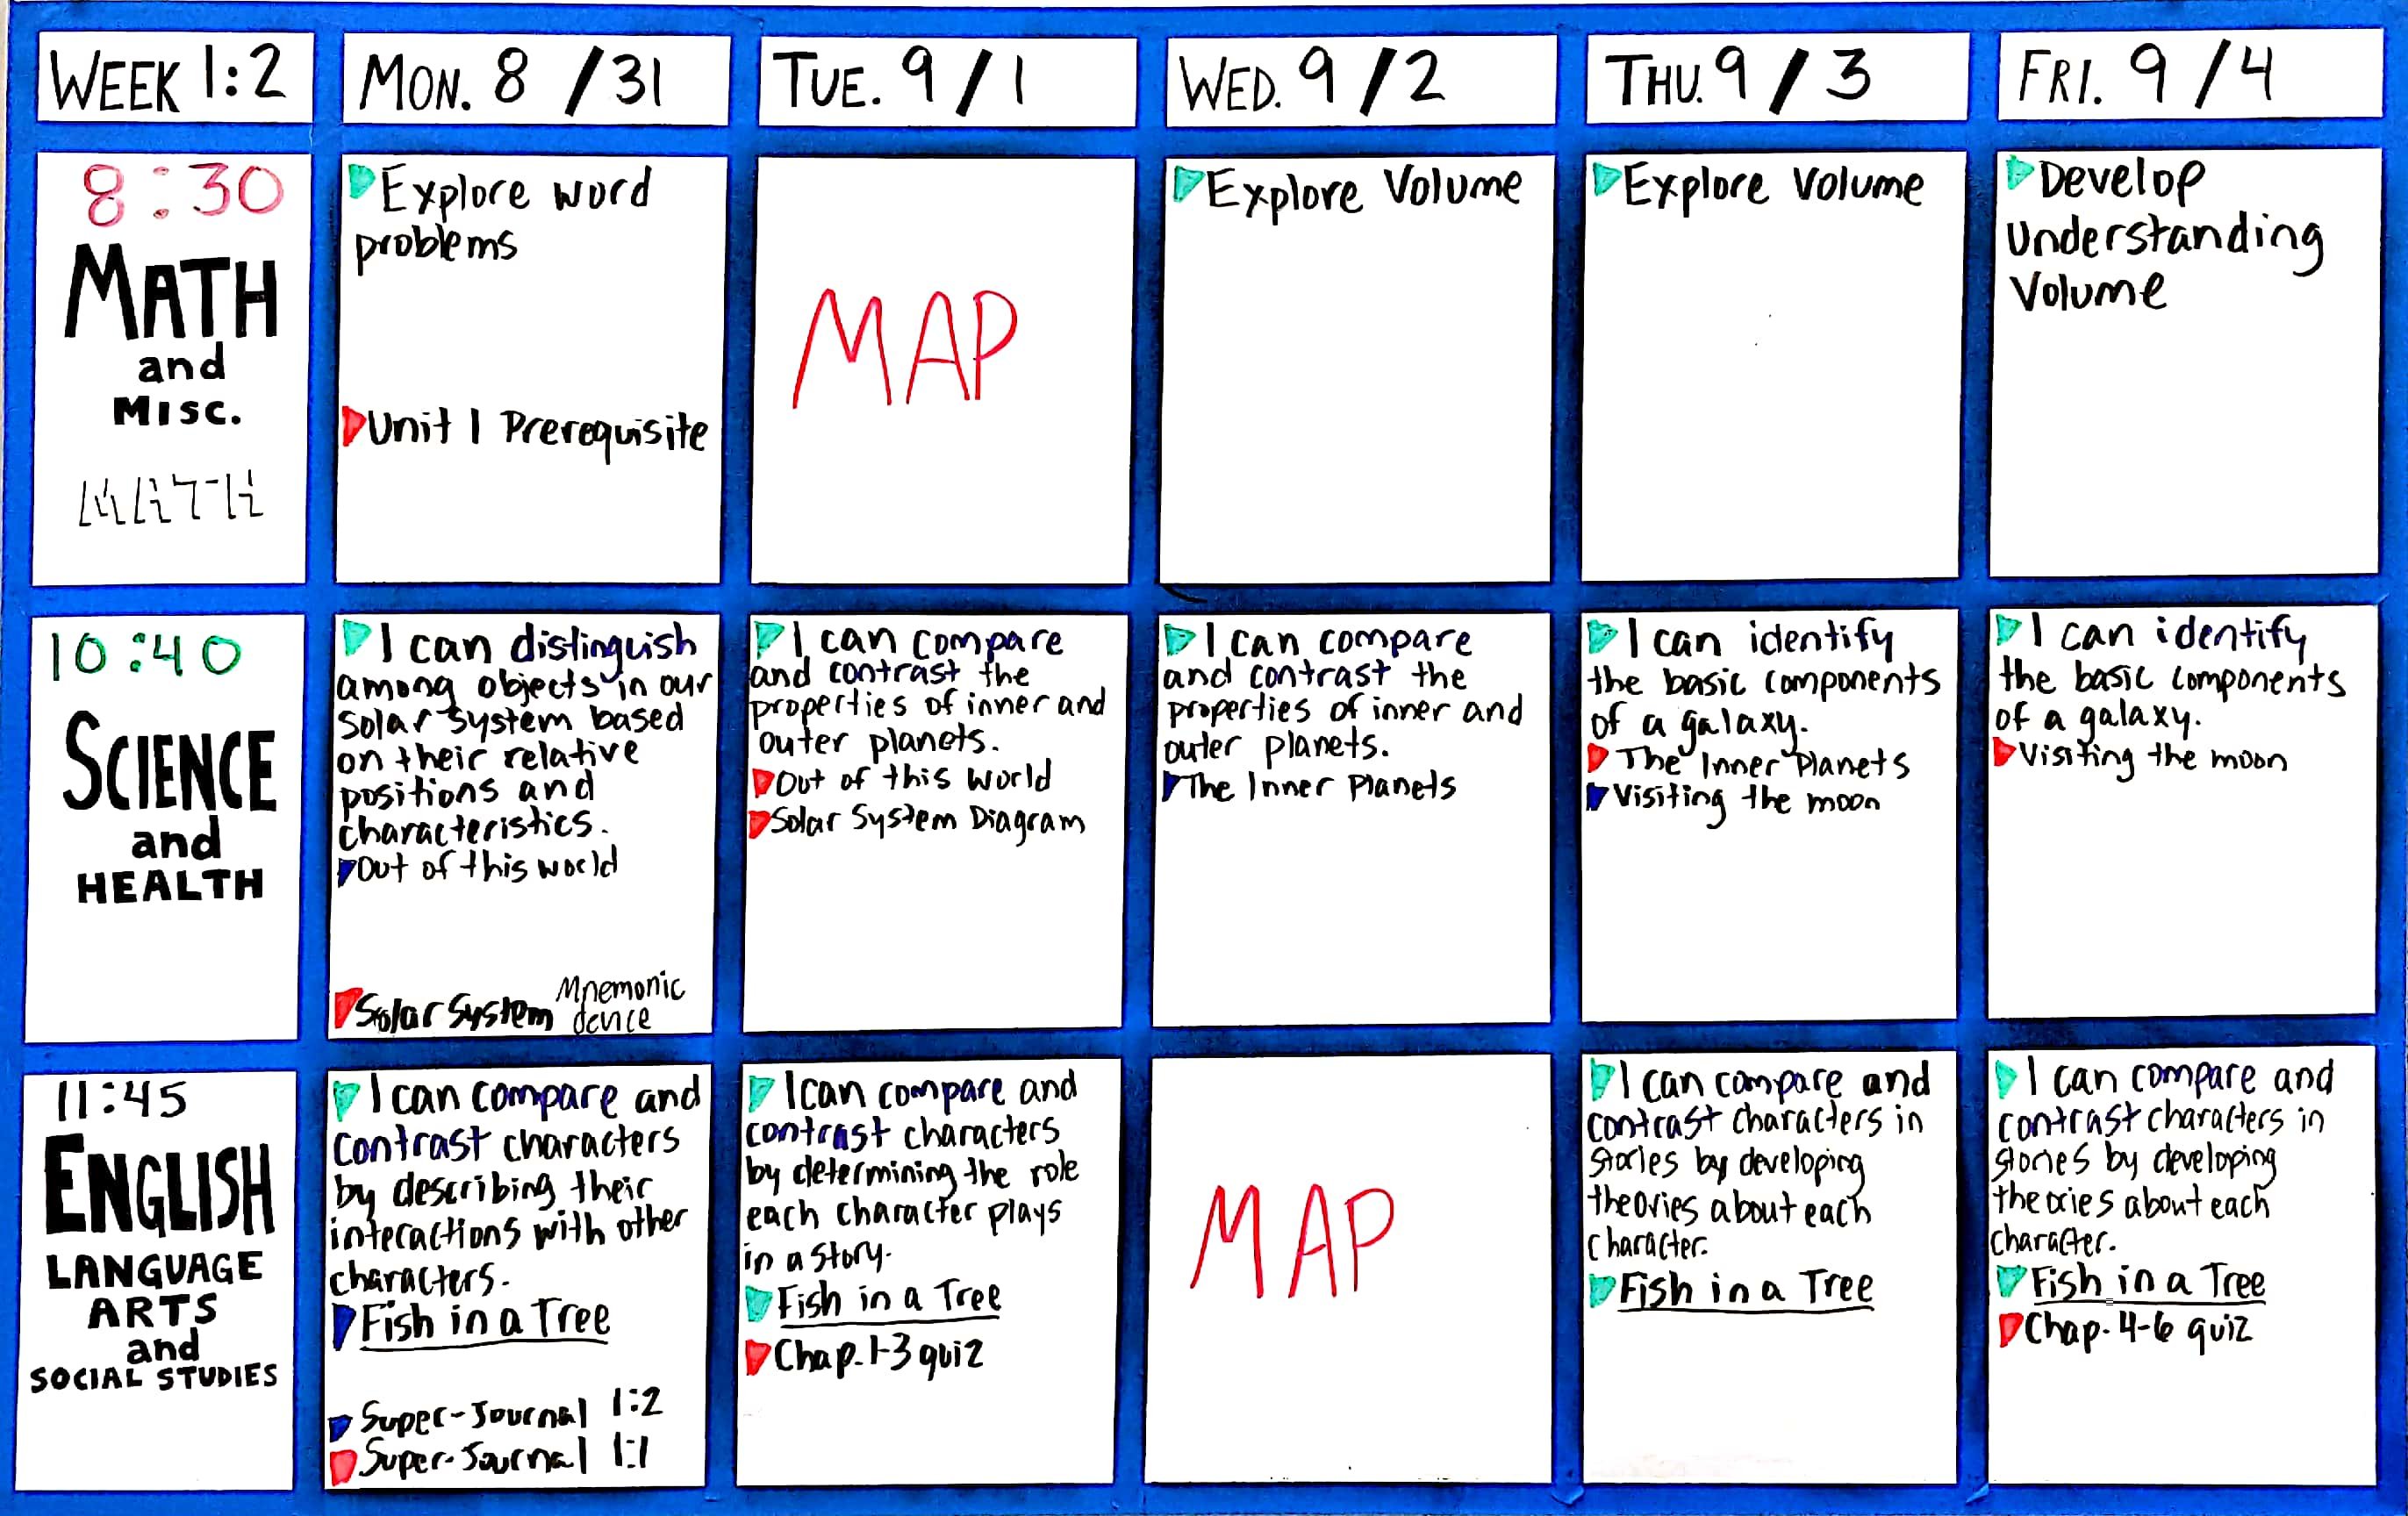 WEEK 1:2
MON. 8 /31
TUE. 9/1
WED. 9/2
THU. 9/3
FRI. 9/4
8:30
MATH
and
MISC.
MATH
Explore word
problems
Unit 1 Prerequisite
MAP
Explore Volume
Explore Volume
Develop
Understanding
Volume
10:40
SCIENCE
and
HEALTH
I can distinguish
among objects in our
solar system based
on their relative
positions and
characteristics.
Out of this world
Solar System Mnemonic
device
I can compare
and contrast the
properties of inner and
outer planets.
Out of this World
Solar System Diagram
I can compare
and contrast the
properties of inner and
outer planets.
The Inner Planets
I can identify
the basic components
of a galaxy.
The Inner Planets
Visiting the moon
I can identify
the basic components
of a galaxy.
Visiting the moon
11:45
ENGLISH
LANGUAGE
ARTS
and
SOCIAL STUDIES
I can compare and
contrast characters
by describing their
interactions with other
characters.
Fish in a Tree
Super-Journal 1:2
Super-Journal 1:1
I can compare and
contrast characters
by determining the role
each character plays
in a story.
Fish in a Tree
Chap. 1-3 quiz
MAP
I can compare and
contrast characters in
stories by developing
theories about each
character.
Fish in a Tree
I can compare and
contrast characters in
stories by developing
theories about each
character.
Fish in a Tree
Chap. 4-6 quiz